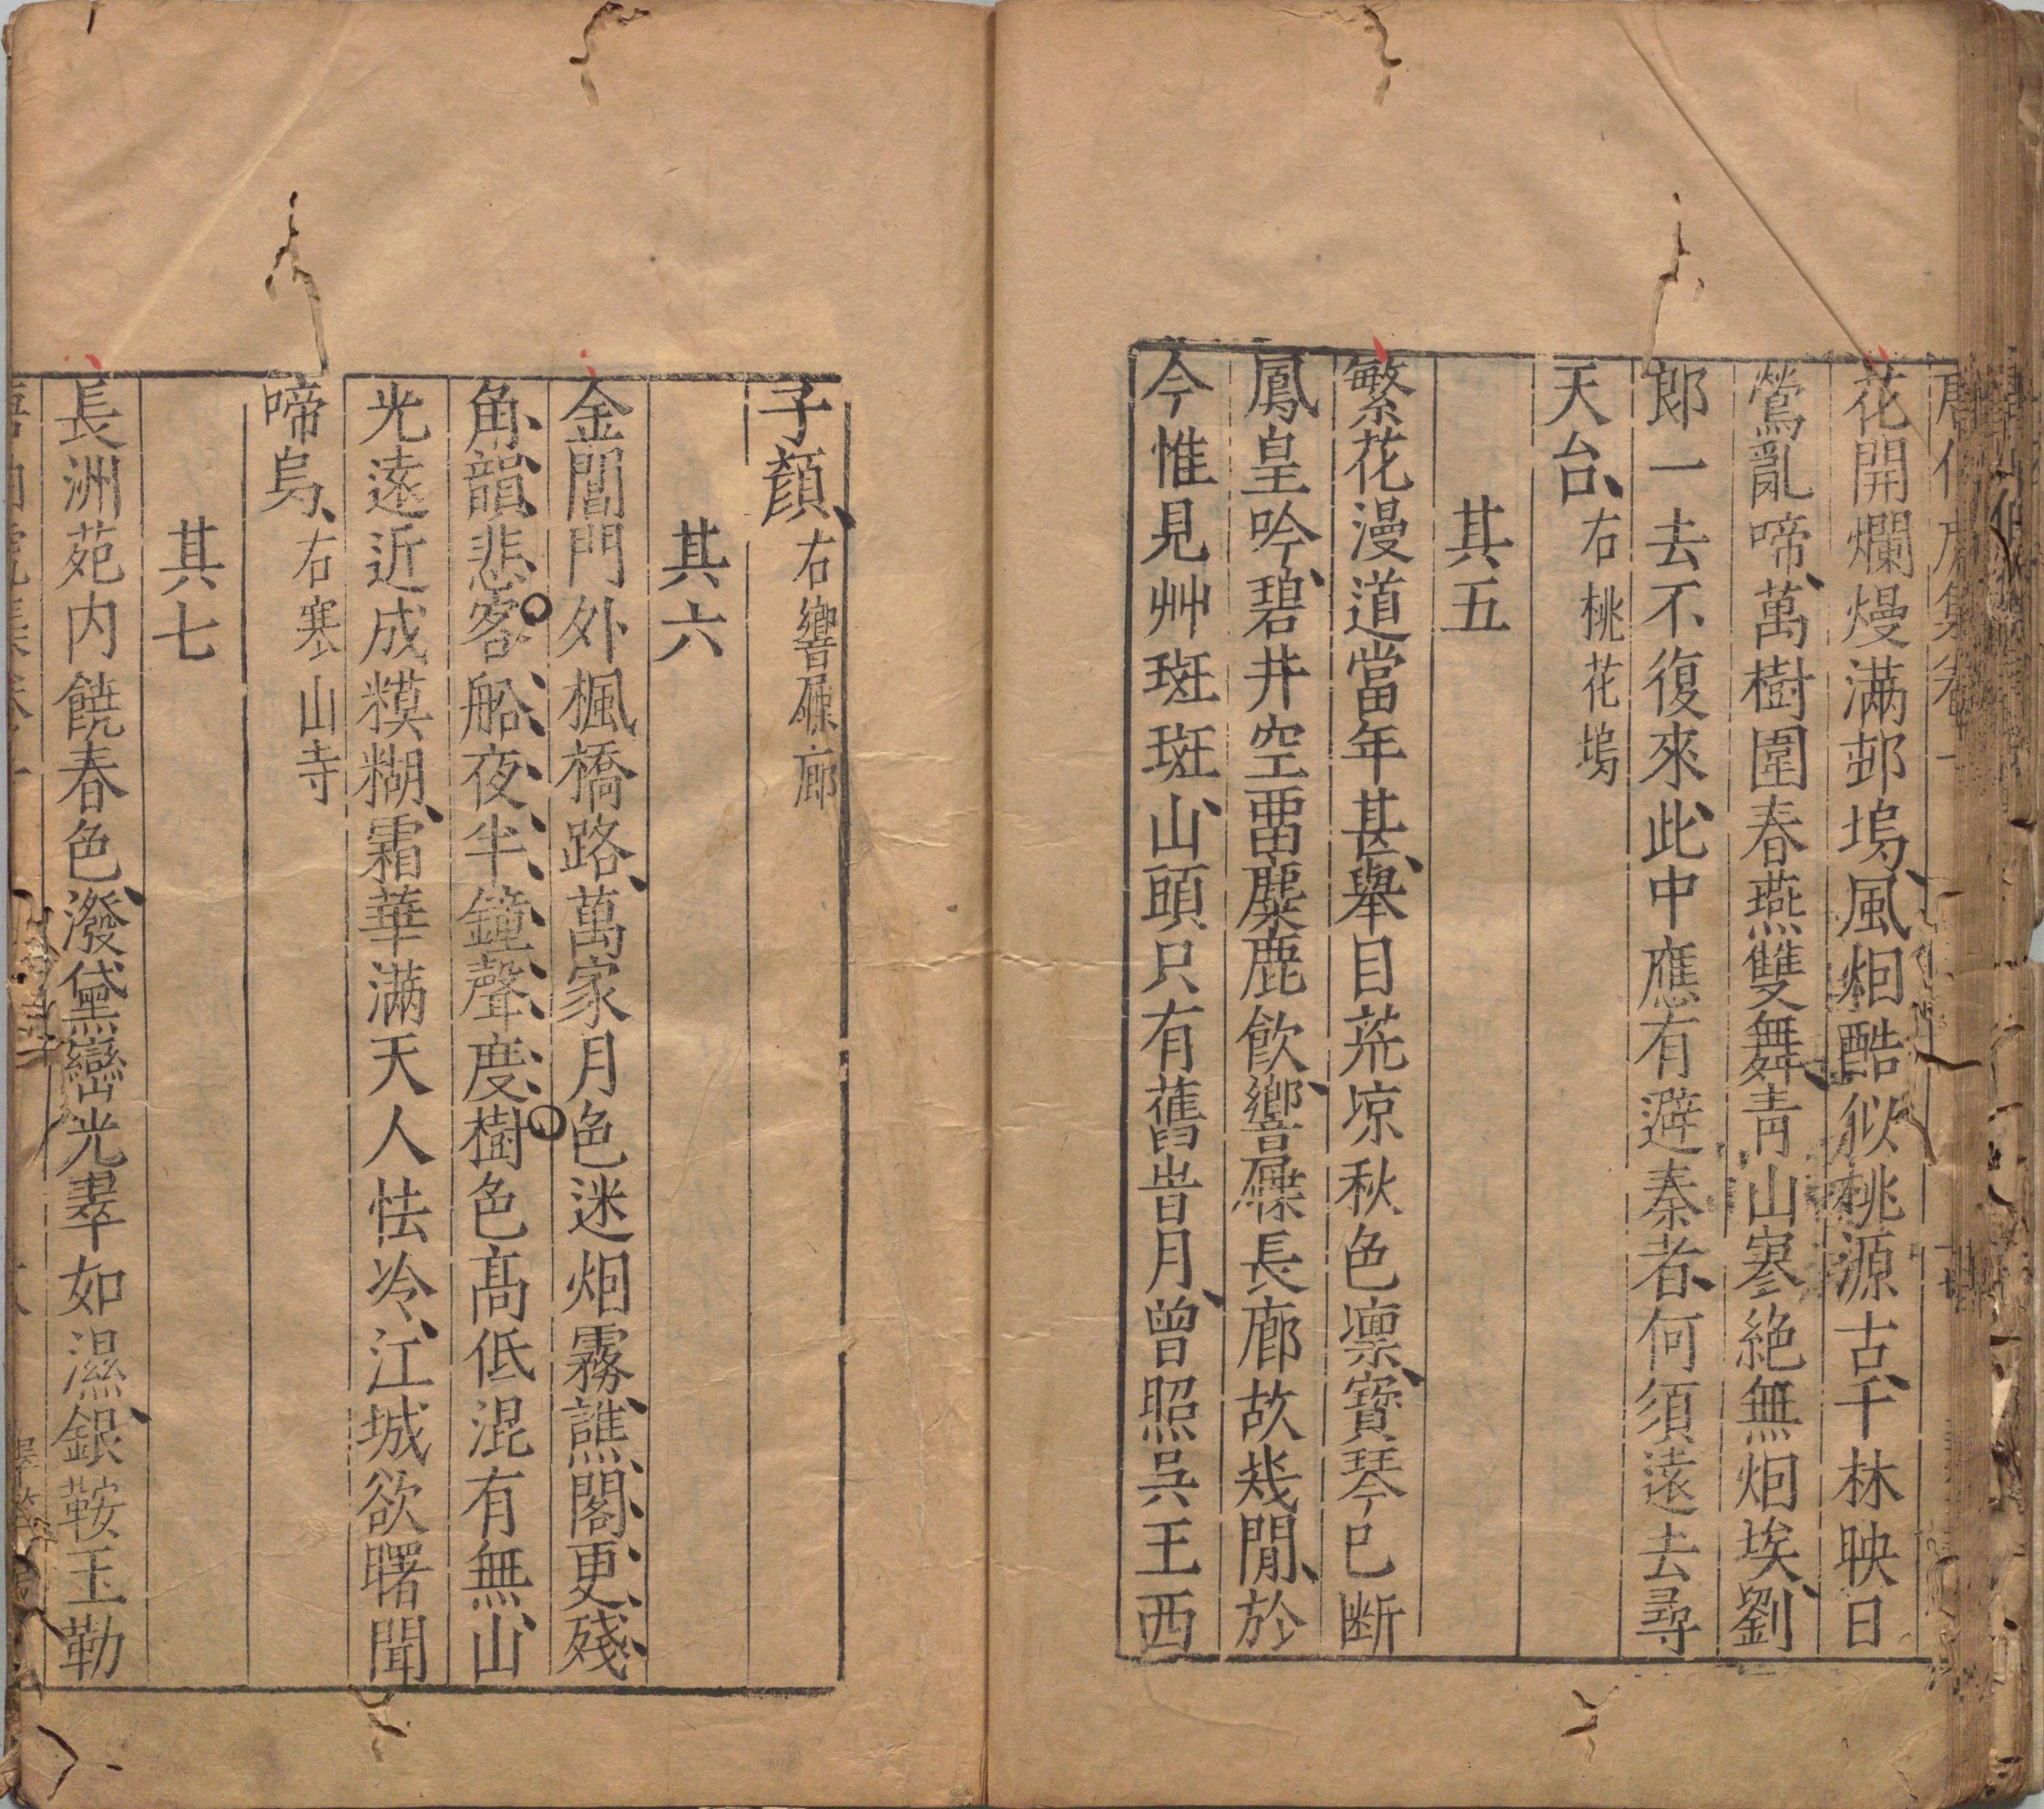 花開爛熳滿邨塢、風烟酷似桃源古、千林映日
鶯亂啼、萬樹圍春燕雙舞、青山寥絶無烟埃、劉
郎一去不復來、此中應有避秦者、何須遠去尋
天台、右桃花塢
其五
繁花漫道當年甚、舉目荒凉秋色凛、寶琴已断
鳳皇吟、碧井空畱麋鹿飲、響屧長廊故幾間、於
今惟見艸斑斑、山頭只有舊旹月、曾照吳王西
子顏、右響屧廊
其六
金閶門外楓橋路、萬家月色迷烟霧、譙閣更殘
角韻悲、客船夜半鐘聲度、樹色高低混有無、山
光遠近成糢糊、霜華滿天人怯冷、江城欲曙聞
啼烏、右寒山寺
其七
長洲苑内饒春色、潑黛巒光翠如濕、銀鞍玉勒